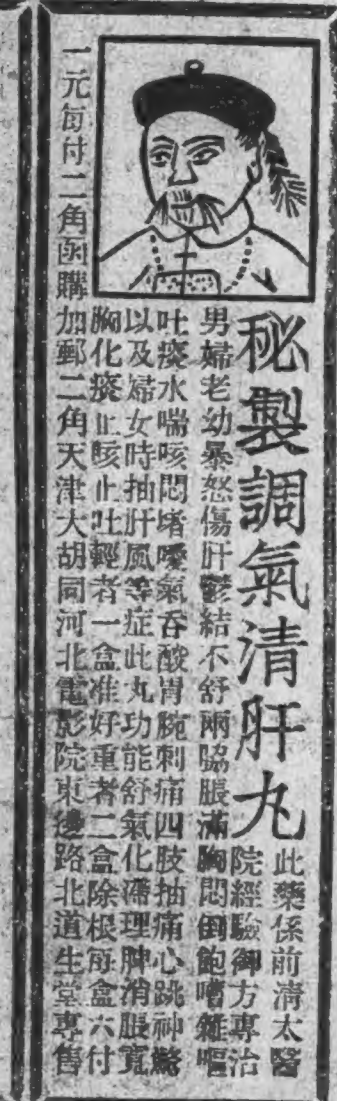 秘製調氣清肝丸
此藥係前清太醫
院經驗御方專治
男婦老幼暴怒傷肝鬱結不舒兩脇脹滿胸悶倒飽嘈雜嘔
吐痰水喘咳悶堵噯氣吞酸胃腕刺痛四肢抽痛心跳神驚
以及婦女時抽肝風等症此丸功能舒氣化滯理脾消脹寬
胸化痰止咳止吐輕者一盒准好重者二盒除根每盒六付
一元每付二角函購加郵二角天津大胡同河北電影院東邊路北道生堂專售